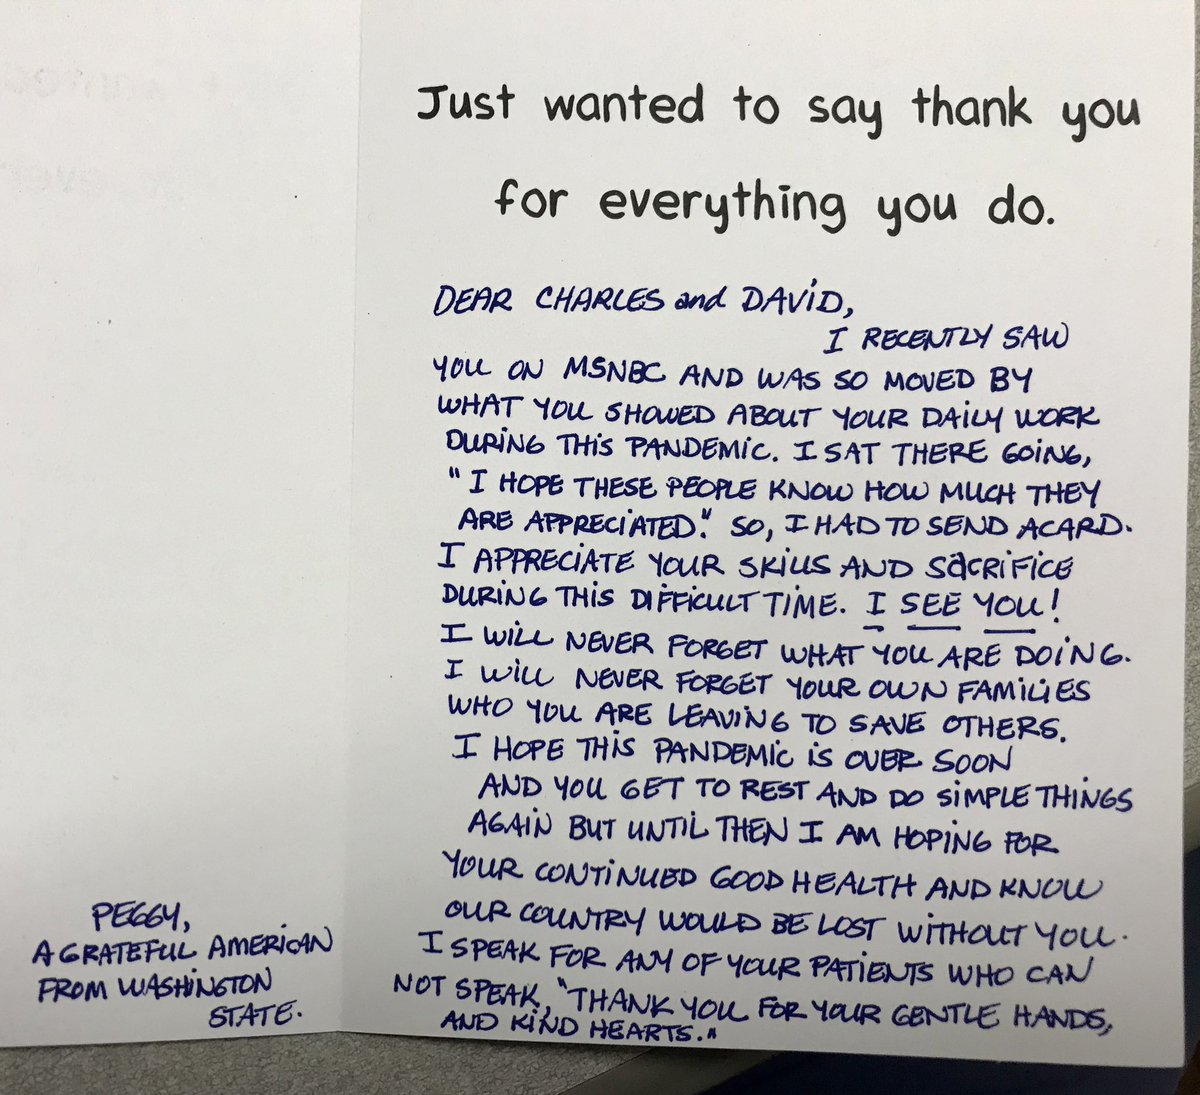 Just wanted to say thank you
for everything you do.
DEAR CHARLES and DAVID,
I RECENTLY SAW
YOU ON MSNBC AND WAS SO MOVED BY
WHAT YOU SHOWED ABOUT YOUR DAILY WORK
DURING THIS PANDEMIC. I SAT THERE GOING,
"I HOPE THESE PEOPLE KNOW HOW MUCH THEY
ARE APPRECIATED." SO, I HAD TO SEND A CARD.
I APPRECIATE YOUR SKILLS AND SACRIFICE
DURING THIS DIFFICULT TIME. I SEE YOU!
I WILL NEVER FORGET WHAT YOU ARE DOING.
I WILL NEVER FORGET YOUR OWN FAMILIES
WHO YOU ARE LEAVING TO SAVE OTHERS.
I HOPE THIS PANDEMIC IS OVER SOON
AND YOU GET TO REST AND DO SIMPLE THINGS
AGAIN BUT UNTIL THEN I AM HOPING FOR
YOUR CONTINUED GOOD HEALTH AND KNOW
OUR COUNTRY WOULD BE LOST WITHOUT YOU.
I SPEAK FOR ANY OF YOUR PATIENTS WHO CAN
NOT SPEAK, "THANK YOU FOR YOUR GENTLE HANDS,
AND KIND HEARTS."
PEGGY,
A GRATEFUL AMERICAN
FROM WASHINGTON
STATE.